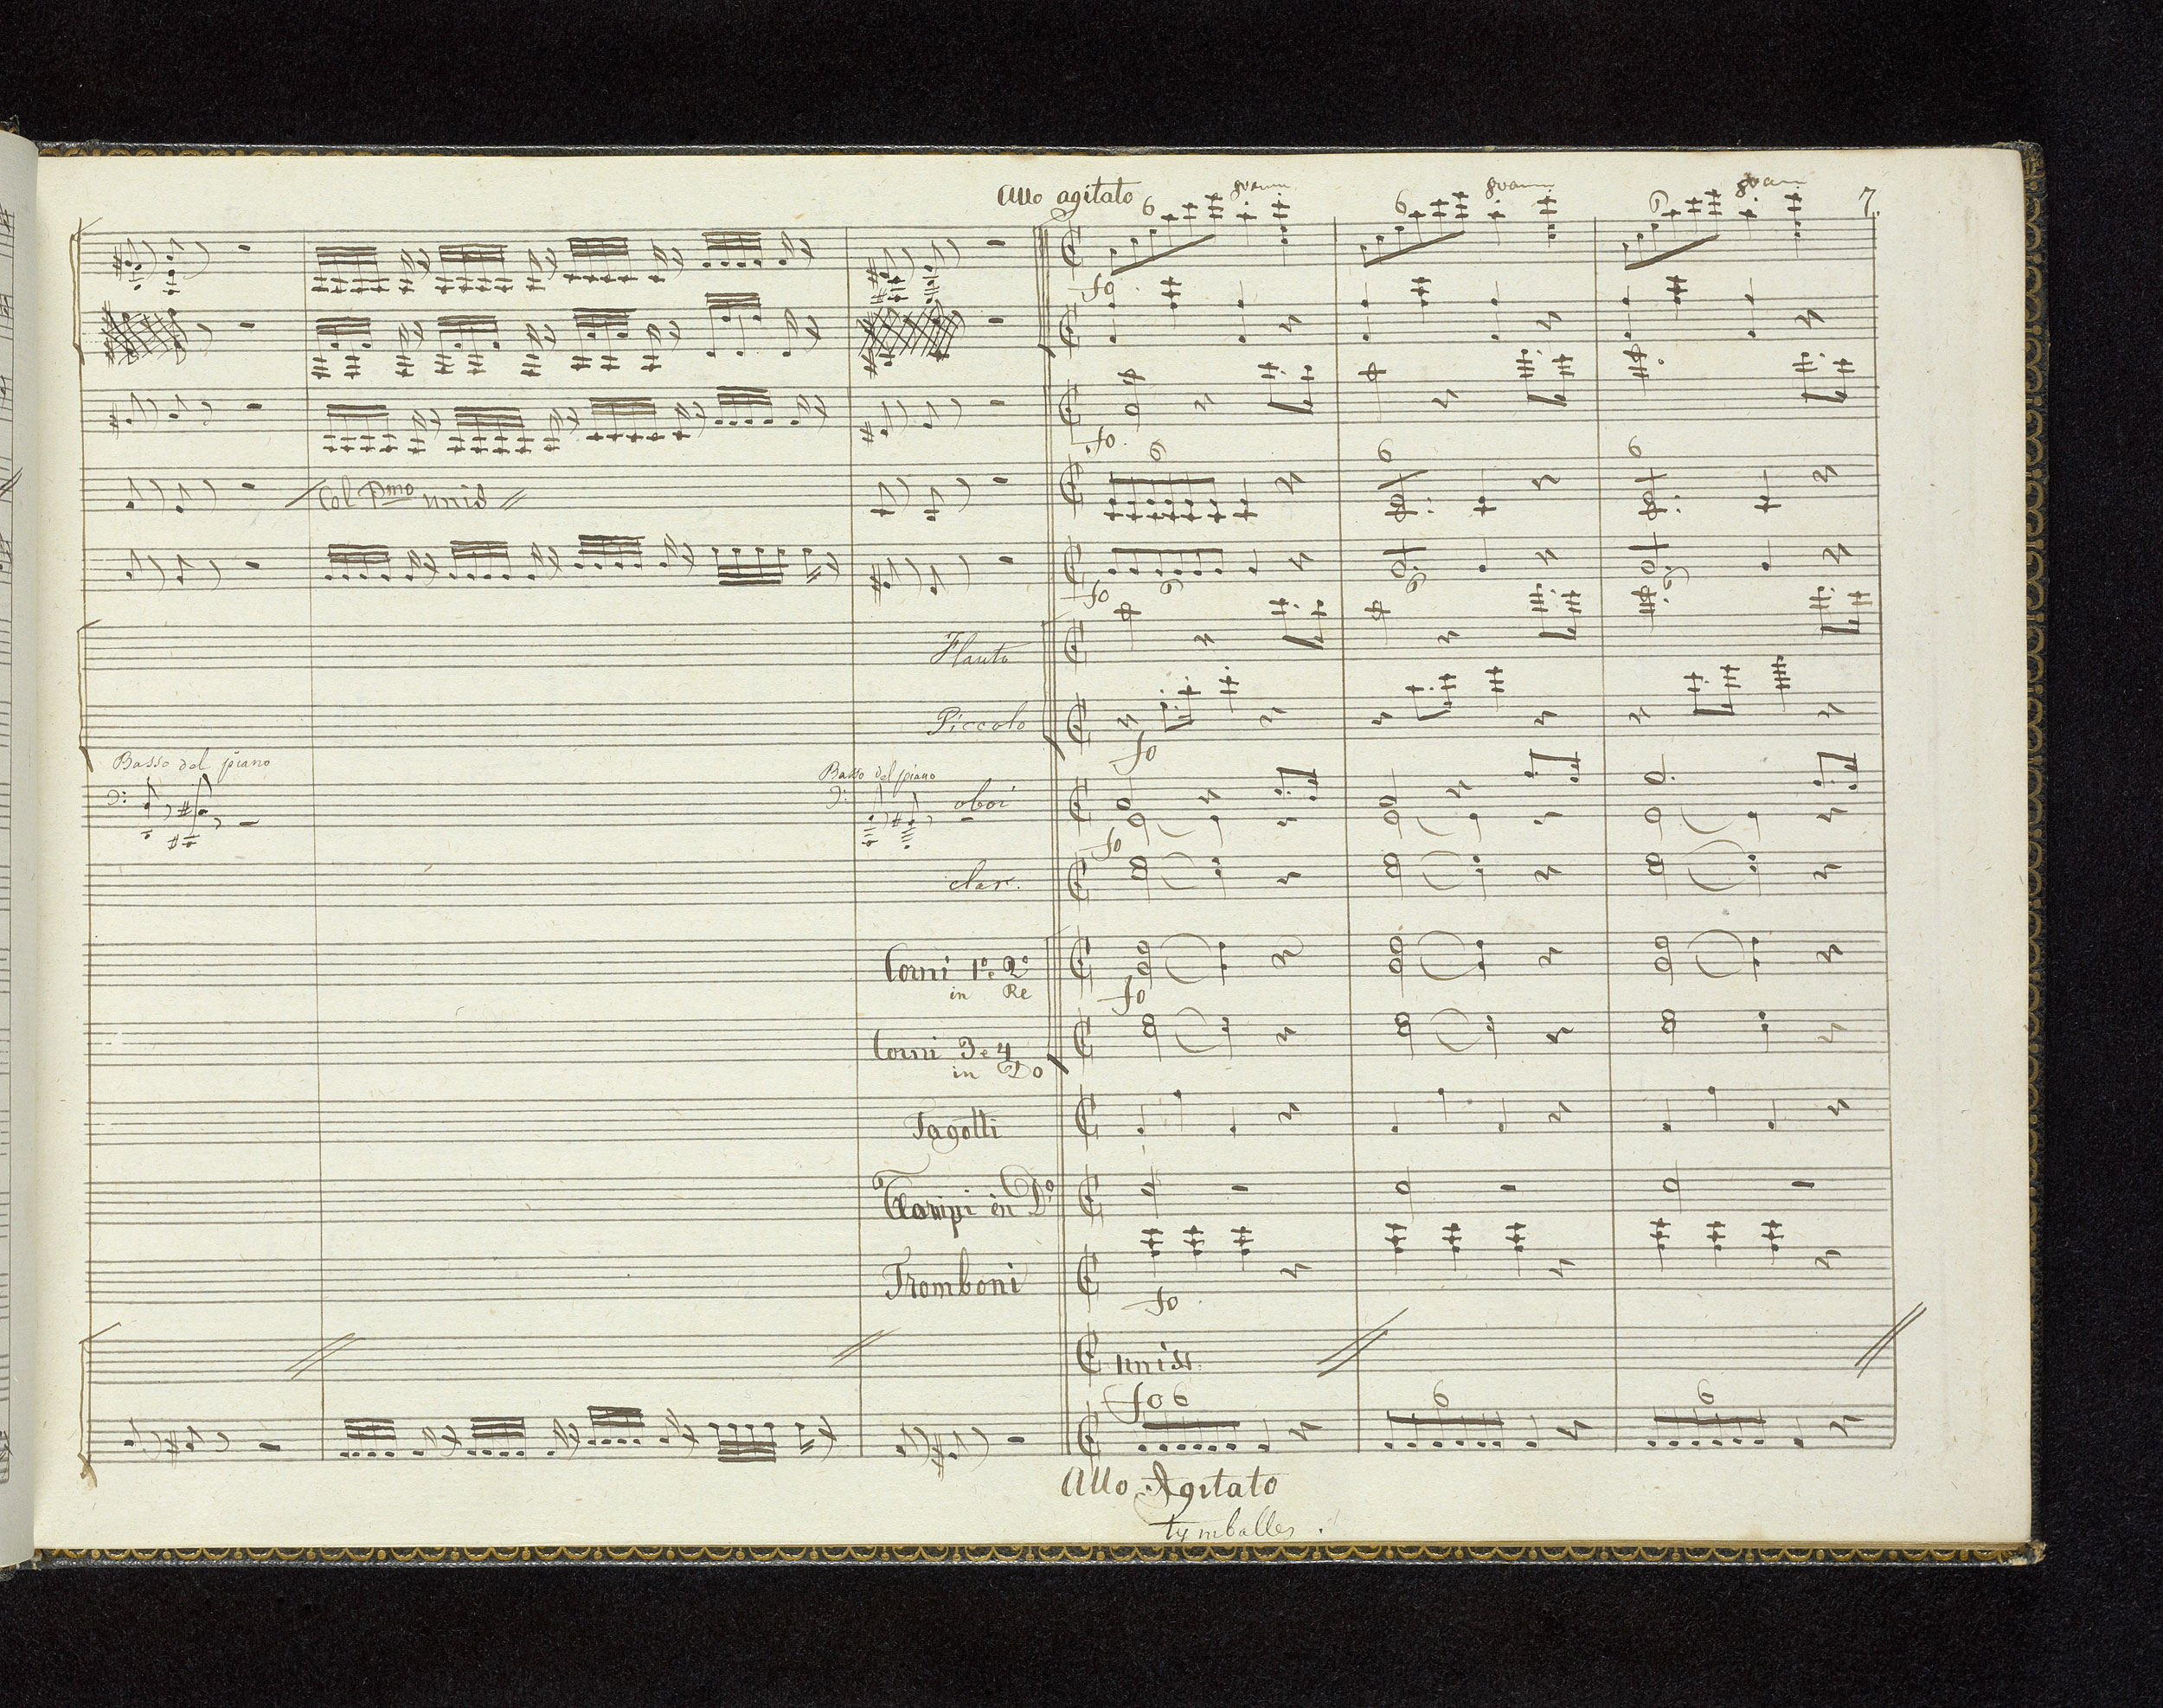 Allo agitato 6 8va 6 8va 6 8va 7.
fo.
fo.
6 6 6
Col Pmo unis
fo 6 6 6
Flauto
Piccolo
fo
Basso del piano
Basso del piano
oboi
fo
clar.
Corni 1º e 2º
in Re
fo
Corni 3 e 4
in Do
Fagotti
Clarini in Do
Tromboni
fo
uniss.
fo 6 6 6
Allo Agitato
tymballes.